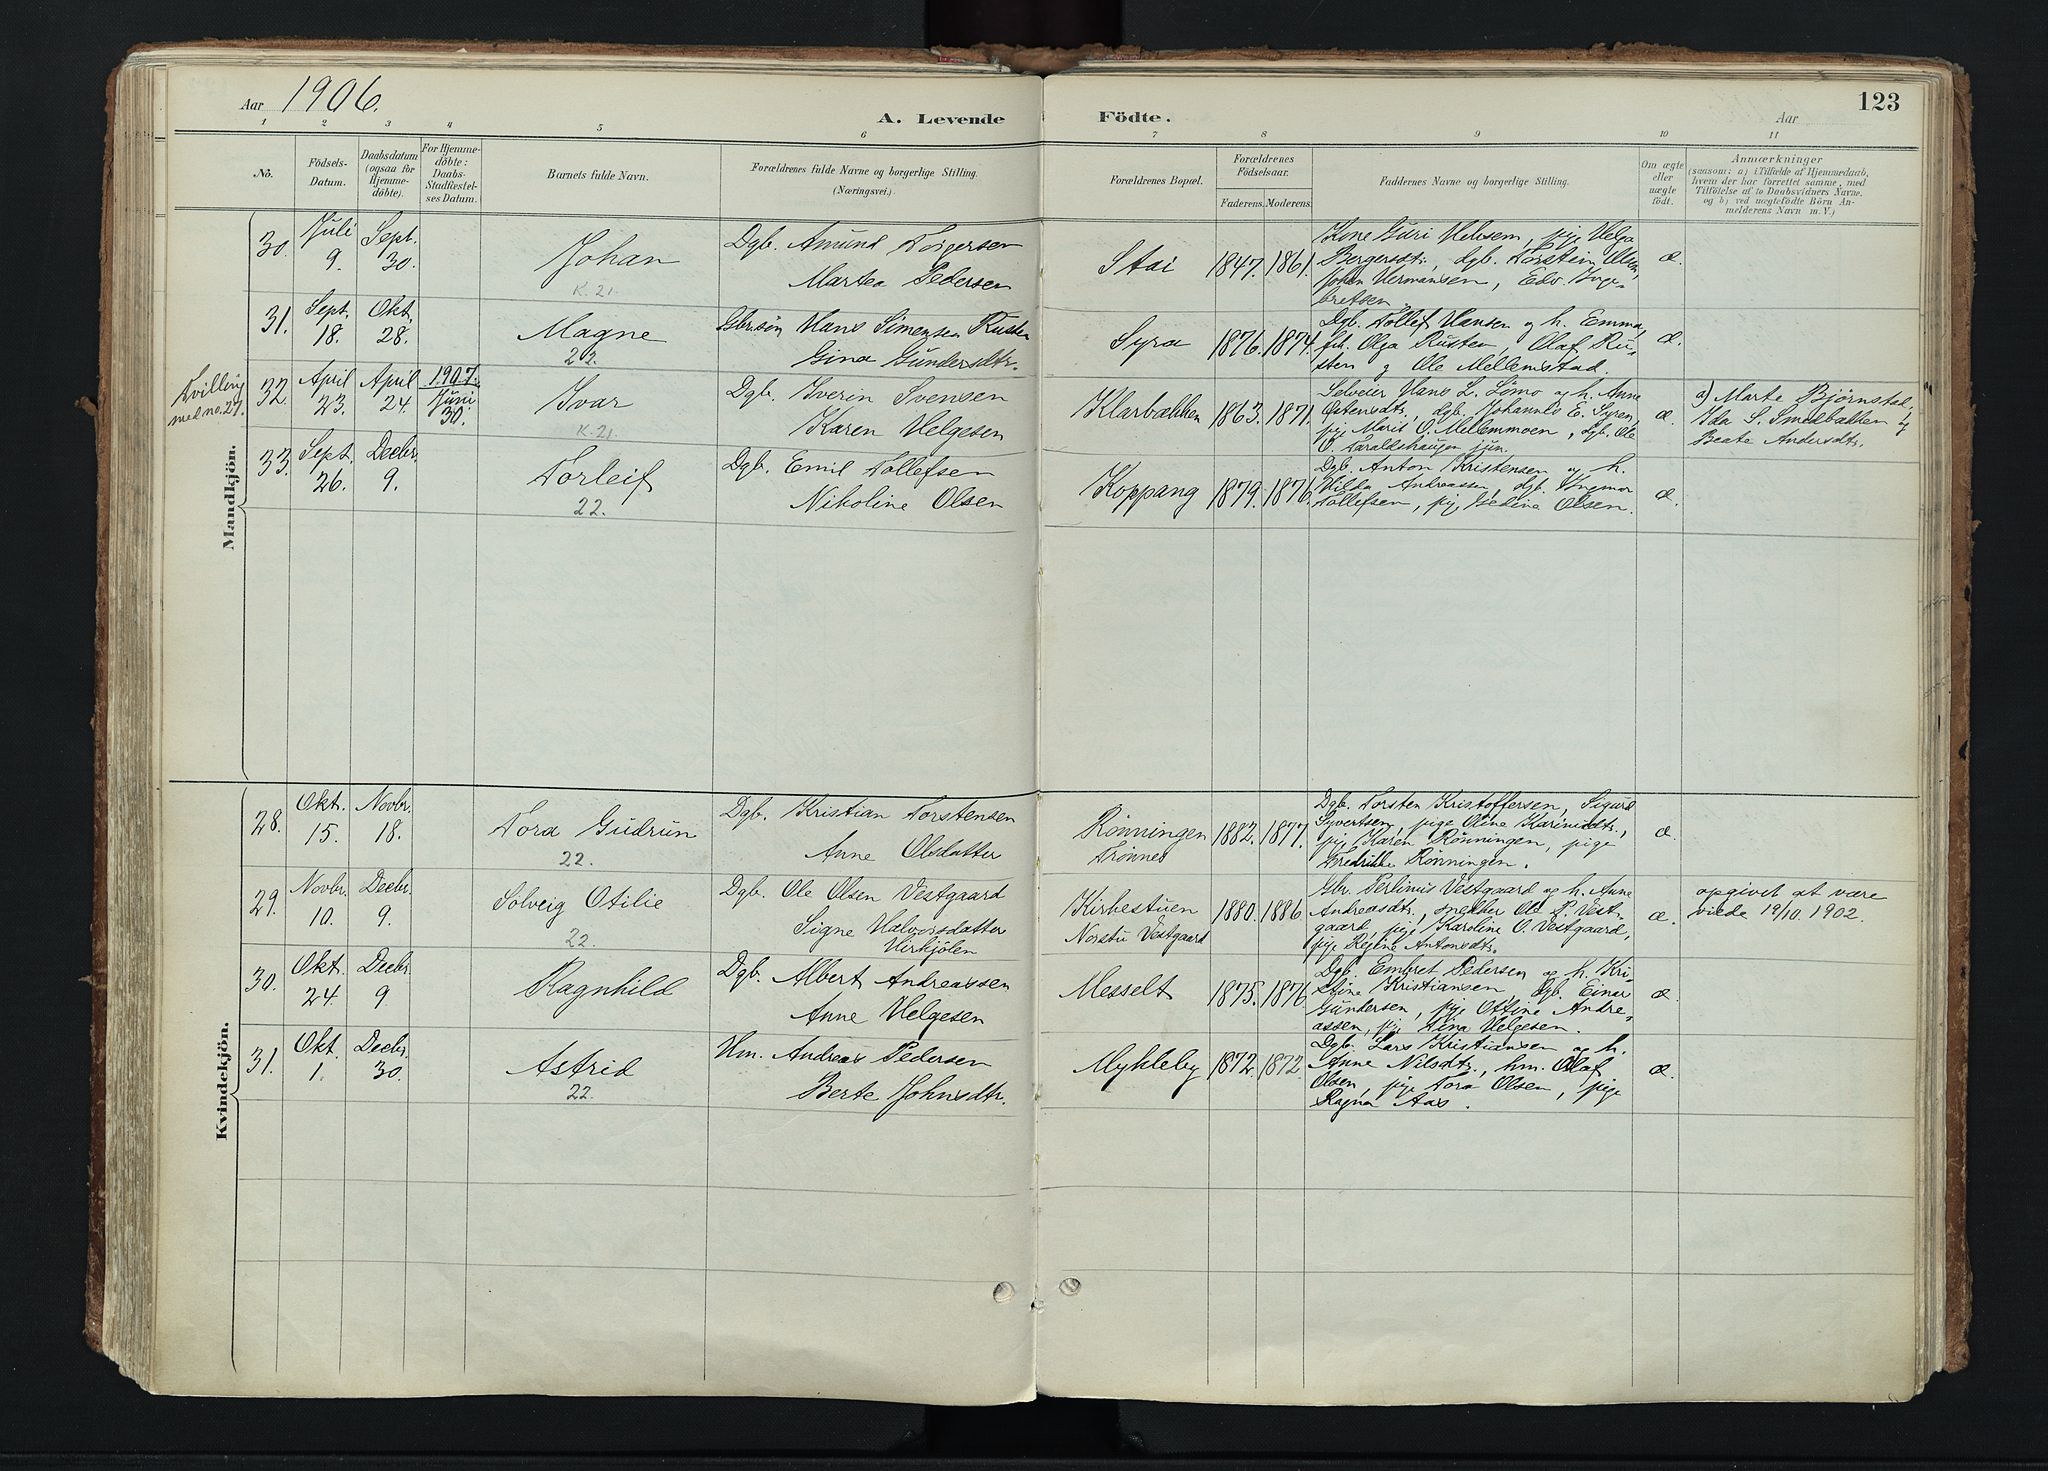 Aar 1906.
A. Levende Födte.
123
Aar
1 2 3 4 5 6 7 8 9 10 11
No.
Födsels-Datum.
Daabsdatum (ogsaa for Hjemmedöbte).
For Hjemmedöbte: Daabs-Stadfæstelses Datum.
Barnets fulde Navn.
Forældrenes fulde Navne og borgerlige Stilling.
(Næringsvei.)
Forældrenes Bopæl.
Forældrenes Födselsaar.
Faderens. Moderens.
Faddernes Navne og borgerlige Stilling.
Om ægte eller uægte födt.
Anmærkninger
(saasom: a) i Tilfælde af Hjemmedaab,
hvem der har forrettet samme, med
Tilföielse af to Daabsvidners Navne.
og b) ved uægtefödte Börn Anmelderens Navn m. V.)
Mandkjön.
30. Juli 9. Sept. 30.
Johan
K. 21.
Dgb. Amund Torgersen
Martea Pedersen
Stai
1847. 1861.
Kone Guri Helsem, pige Helga
Bergersdtr., dgb. Torstein Olsen,
Johan Hermansen, Edv. Inge-
bretsen
æ.
31. Sept. 18. Okt. 28.
Magne
22.
Gbrsøn Hans Simensen Rusten
Gina Gundersdtr.
Syra
1876. 1874.
Dgb. Tollef Hansen og h. Emma,
frk. Olga Rusten, Olaf Ru-
sten og Ole Mellemstad.
æ.
Tvilling
med no. 27.
32. April 23. April 24. 1907. Juni 30.
Ivar
K. 21
Dgb. Iverin Svensen
Karen Helgesen
Klarbækken
1863. 1871.
Selveier Hans L. Lömo og h. Anne
Østensdtr., dgb. Johannes E. Syren,
pige Marit O. Mellemmoen, dgb. Ole
O. Taraldshaugen jun.
æ.
a) Marte Bjørnstad,
Ida S. Smedbakken og
Beate Andersdtr.
33. Sept. 26. Decbr. 9.
Torleif
22.
Dgb. Emil Tollefsen
Nikoline Olsen
Koppang
1879. 1876.
Dgb. Anton Kristensen og h.
Hilda Andreassen, dgb. Ingmar
Tollefsen, pige Gedina Olsen.
æ.
Kvindekjön.
28. Okt. 15. Novbr. 18.
Tora Gudrun
22.
Dgb. Kristian Torstensen
Anne Olsdatter
Rønningen
Trønnes
1882. 1877.
Dgb. Torsten Kristoffersen, Sigurd
Syvertsen, pige Oline Kariusdtr.,
pige Karen Rønningen, pige
Fredrikke Rønningen.
æ.
29. Novbr. 10. Decbr. 9.
Solveig Otilie
22.
Dgb. Ole Olsen Vestgaard
Signe Halvorsdatter
Hirkjølen
Kirkestuen
Norstu Vestgaard
1880. 1886
Gbr. Perlinus Vestgaard og h. Anne
Andreasdtr., snekker Ole P. Vest-
gaard, pige Karoline O. Vestgaard,
pige Regine Antonsdtr.
æ.
opgivet at være
viede 19/10. 1902.
30. Okt. 24. Decbr. 9
Ragnhild
Dgb. Albert Andreassen
Anne Helgesen
Messelt
1875. 1876.
Dgb. Embret Pedersen og h. Kri-
stine Kristiansen dgb. Einar
Gundersen, pige Ottine Andre-
assen, pige Lina Helgesen.
æ.
31. Okt. 1. Decbr. 30.
Astrid
22.
Hm. Andreas Pedersen
Berte Johnsdtr.
Mykleby
1872. 1872
Dgb. Lars Kristiansen og h.
Anne Nilsdtr., hm. Olaf
Olsen, pige Tora Olsen, pige
Ragna Aas.
æ.